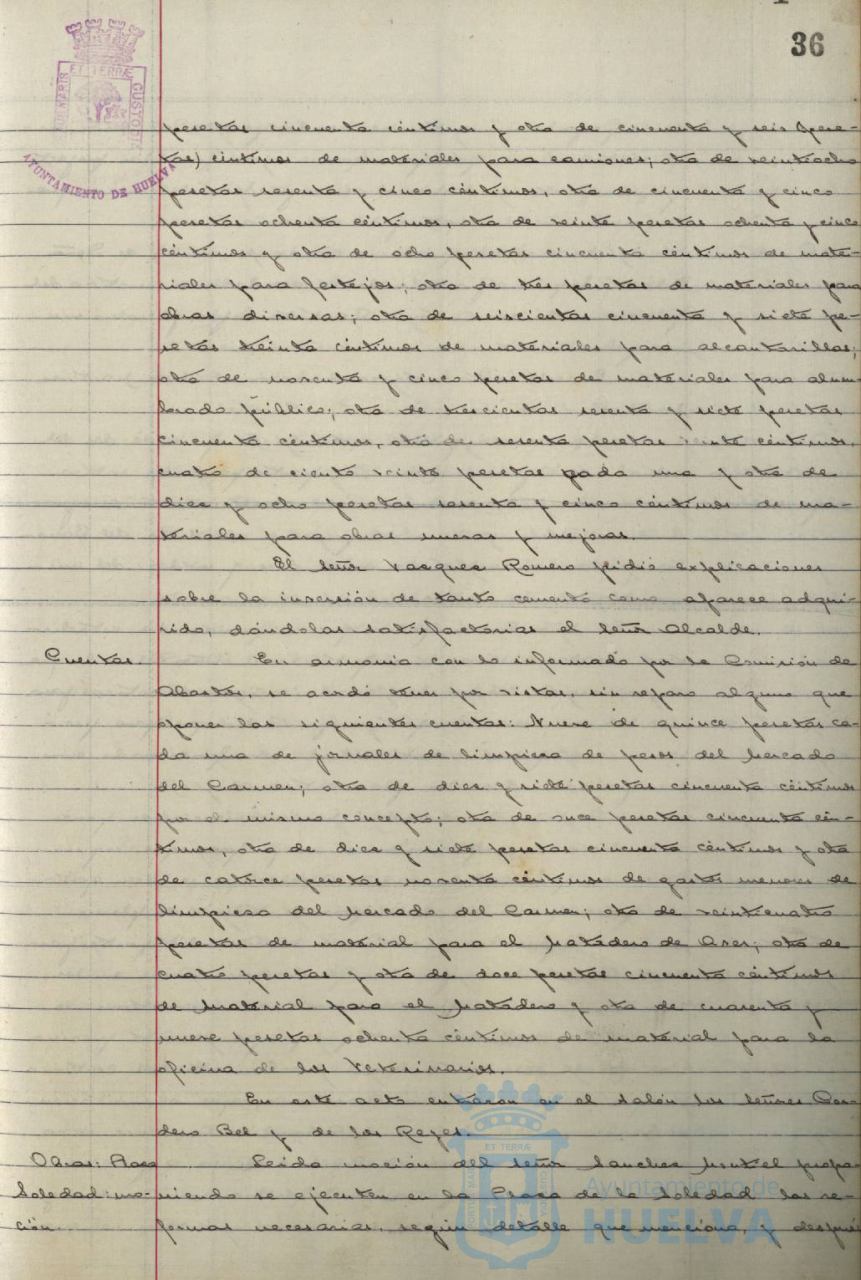 36
ET TERRÆ
CUSTODIA
AYUNTAMIENTO DE HUELVA
pesetas cincuenta céntimos y otra de cincuenta y seis (pese-
tas) céntimos de materiales para camiones; otra de veintiocho
pesetas sesenta y cinco céntimos, otra de cincuenta y cinco
pesetas ochenta céntimos, otra de veinte pesetas ochenta y cinco
céntimos y otra de ocho pesetas cincuenta céntimos de mate-
riales para festejos; otra de tres pesetas de materiales para
obras diversas; otra de seiscientas cincuenta y siete pe-
setas treinta céntimos de materiales para alcantarillas;
otra de noventa y cinco pesetas de materiales para alum
brado público; otra de trescientas sesenta y siete pesetas
cincuenta céntimos, otra de sesenta pesetas veinte céntimos,
cuatro de ciento veinte pesetas cada una y otra de
diez y ocho pesetas sesenta y cinco céntimos de ma-
teriales para obras nuevas y mejoras.
El señor Vazquez Romero pidió explicaciones
sobre la inversión de tanto cemento como aparece adqui-
rido, dándolas satisfactorias el señor Alcalde.
Cuentas. En armonia con lo informado por la Comisión de
Abastos, se acordó tener por vistas, sin reparo alguno que
oponer las siguientes cuentas: Nueve de quince pesetas ca-
da una de jornales de limpieza de pesos del Mercado
del Carmen; otra de diez y siete pesetas cincuenta céntimos
por el mismo concepto; otra de once pesetas cincuenta cén-
timos, otra de diez y siete pesetas cincuenta céntimos y otra
de catorce pesetas noventa céntimos de gastos menores de
limpieza del Mercado del Carmen; otra de veinticuatro
pesetas de material para el Matadero de Aves; otra de
cuatro pesetas y otra de doce pesetas cincuenta céntimos
de material para el Matadero y otra de cuarenta y
nueve pesetas ochenta céntimos de material para la
oficina de los Veterinarios.
En este acto entraron en el salón los señores Cor-
dero Bel y de los Reyes.
Obras: Plaza Leida moción del señor Sanchez Montel propo-
Soledad: mo- niendo se ejecuten en la Plaza de la Soledad las re-
ción. formas necesarias, según detalle que menciona, y después
ET TERRÆ
Ayuntamiento de
HUELVA